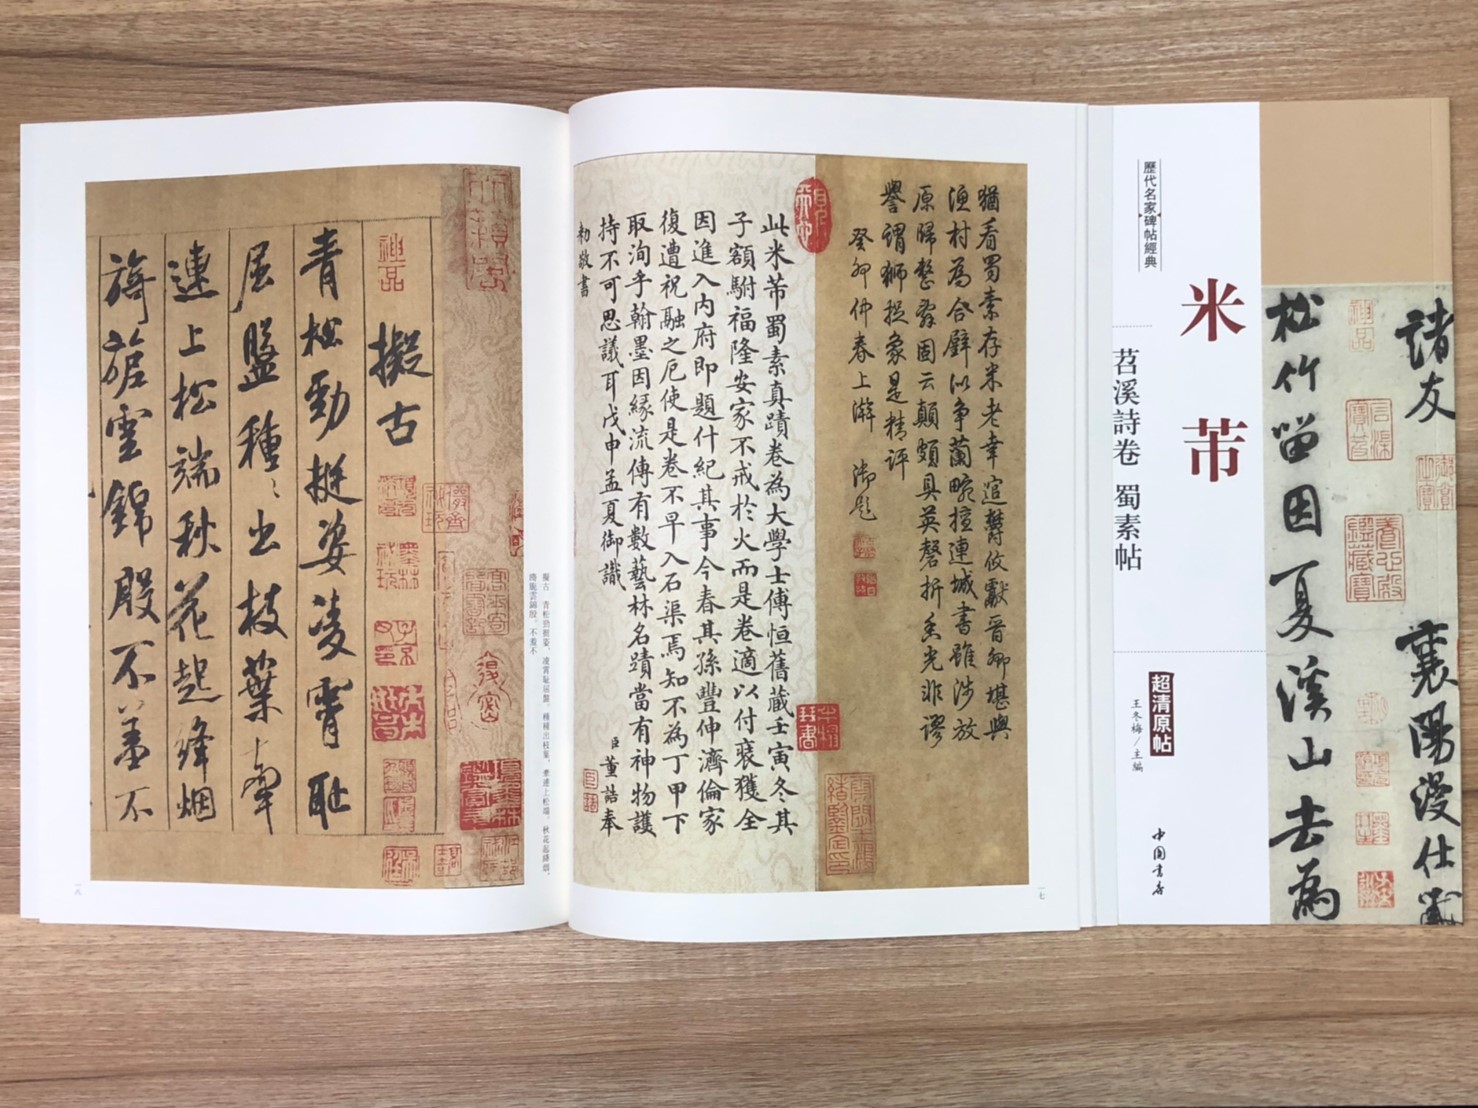 諸友
襄陽漫仕
松竹留因夏溪山去為
歷代名家碑帖經典
米芾
苕溪詩卷 蜀素帖
超清原帖
王冬梅/主編
中國書店
猶看蜀素存米老幸逭鬱攸厭晉卿堪與
漁村為合璧以爭蘭畹擅連城書雖涉放
原歸整 固云顛頗具英 折 香光非謬
譽謂獅捉象是精評
癸卯仲春上澣 御題
此米芾蜀素真蹟卷為大學士傅恒舊藏壬寅冬其
子額駙福隆安家不戒於火而是卷適以付裝獲全
因進入內府即題什紀其事今春其孫豐伸濟倫家
復遭祝融之厄使是卷不早入石渠焉知不為丁甲下
取洵乎翰墨因緣流傳有數藝林名蹟當有神物護
持不可思議耳戊申孟夏御識
臣董誥奉
勅敬書
一七
擬古 青松勁挺姿，凌霄恥屈盤。種種出枝葉，牽連上松端。秋花起絳烟，
旖旎雲錦殷。不羞不
神品
擬古
青松勁挺姿凌霄恥
屈盤種〻出枝葉牽
連上松端秋花起絳烟
旖旎雲錦殷不羞不
一八